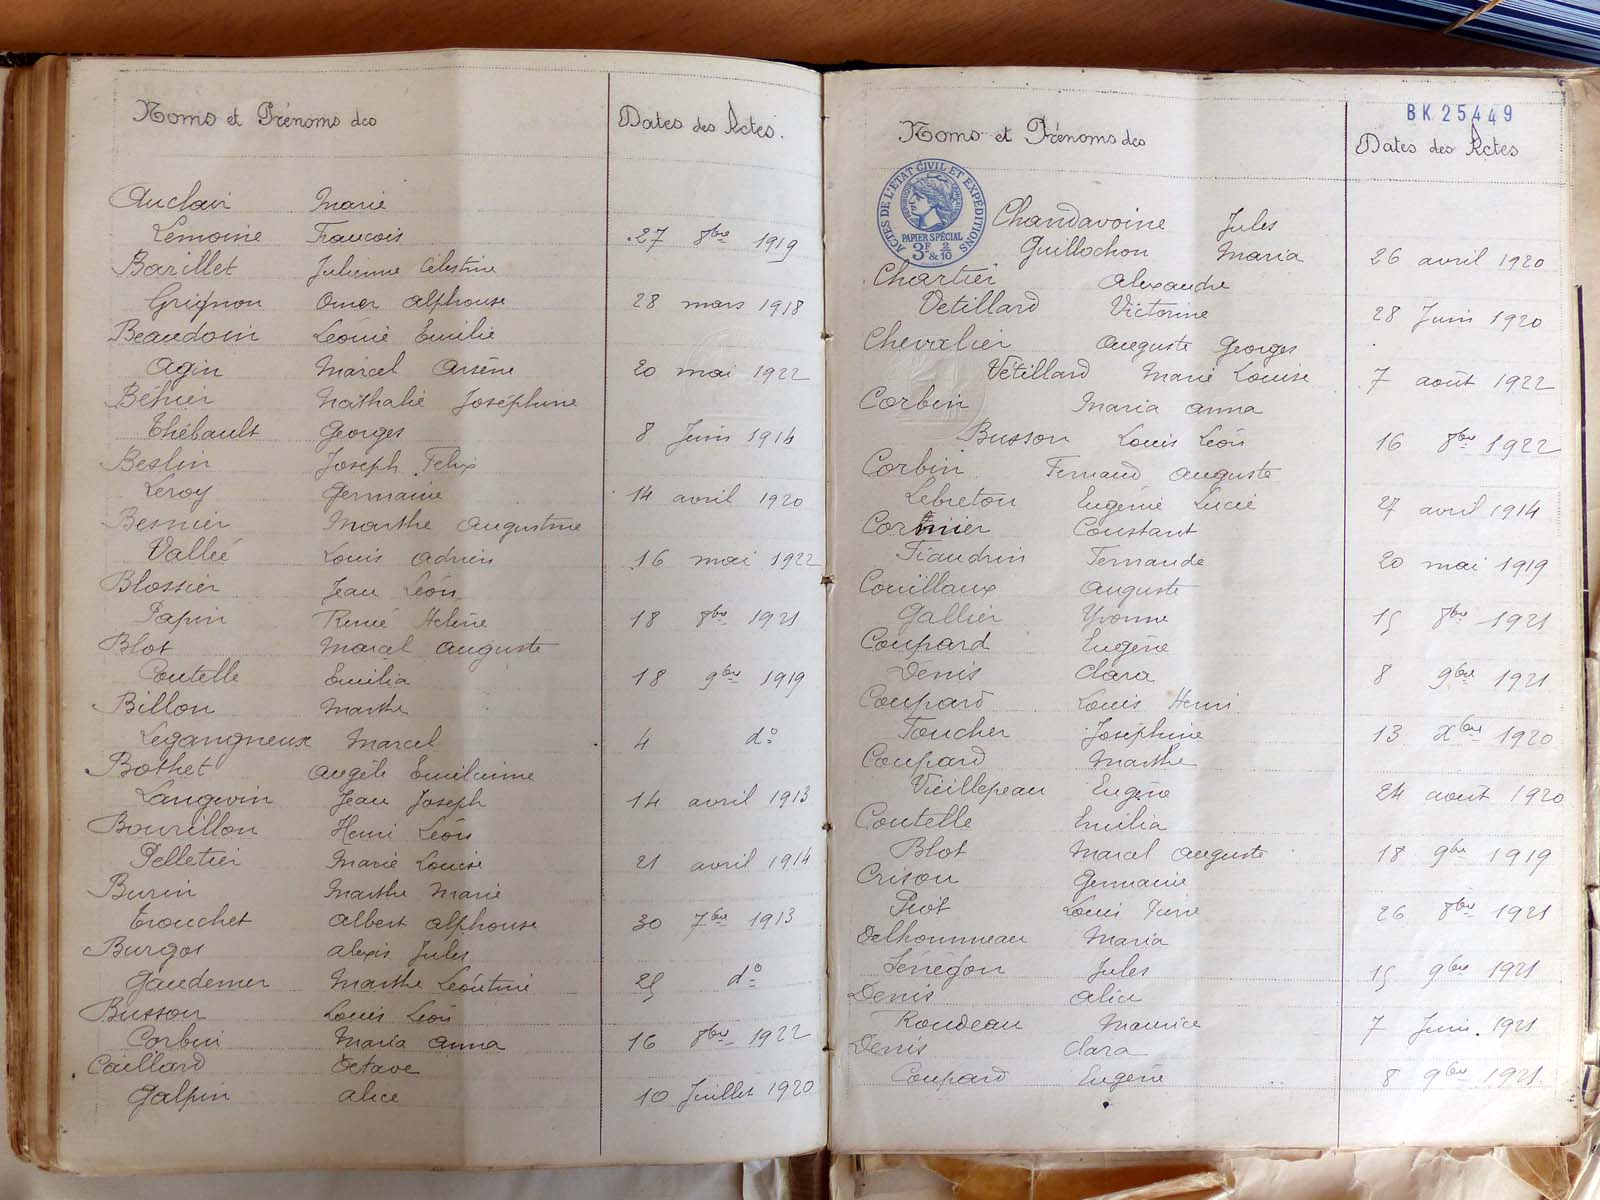 Noms et Prénoms des Dates des Actes.
Auclair Marie
Lemoine Francois 27 8bre 1919
Barillet Julienne Célestine
Grignon Omer alphonse 28 mars 1918
Beaudoin Léonie Emilie
Agin Marcel Arsène 20 mai 1922
Béhier Nathalie Joséphine
Thébault Georges 8 Juin 1914
Beslin Joseph Felix
Leroy Germaine 14 avril 1920
Besnier Marthe Augustine
Vallée Louis Adrien 16 mai 1922
Blossier Jean Léon
Papin Renée Helène 18 8bre 1921
Blot Marcel Auguste
Coutelle Emilia 18 9bre 1919
Billon Marthe
Legangneux Marcel 4 do
Bothet Angèle Emilienne
Langevin Jean Joseph 14 avril 1913
Bourillon Henri Léon
Pelletier Marie Louise 21 avril 1914
Burin Marthe Marie
Trouchet Albert alphonse 30 7bre 1913
Burgos alexis Jules
Gaudemer Marthe Léontine 25 do
Busson Louis Léon
Corbin Maria anna 16 8bre 1922
Caillard Octave
Galpin Alice 10 Juillet 1920
BK 25449
Noms et Prénoms des Dates des Actes
ACTES DE L'ETAT CIVIL ET EXPÉDITIONS
PAPIER SPÉCIAL
3F & 2/10
Chandavoine Jules
Guillochon Maria 26 avril 1920
Chartier Alexandre
Vetillard Victorine 28 Juin 1920
Chevalier Auguste Georges
Vétillard Marie Louise 7 août 1922
Corbin Maria anna
Busson Louis Léon 16 8bre 1922
Corbin Fernand Auguste
Lebreton Eugénie Lucie 27 avril 1914
Cormier Constant
Fernande 20 mai 1919
Couillaux Auguste
Gallier Yvonne 15 8bre 1921
Coupard Eugène
Denis Clara 8 9bre 1921
Coupard Louis Henri
Foucher Joséphine 13 Xbre 1920
Coupard Marthe
Vieillepeau Eugène 24 août 1920
Coutelle Emilia
Blot Marcel Auguste 18 9bre 1919
Crison Germaine
Piot Louis Pierre 26 8bre 1921
Delhommeau Maria
Sénégon Jules 15 9bre 1921
Denis Alice
Rondeau Maurice 7 Juin 1921
Denis Clara
Coupard Eugène 8 9bre 1921